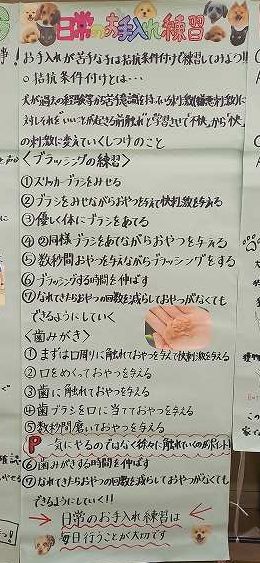 日常のお手入れ練習
お手入れが苦手な子は拮抗条件付けで練習してみよう!!
○拮抗条件付けとは…
犬が過去の経験等から苦手意識を持っている刺激(嫌悪刺激)に
対しそれを"いいことがおきる前触れ"と学習させて"不快"から"快"
の刺激に変えていくしつけのこと
<ブラッシングの練習>
①スリッカーブラシをみせる
②ブラシをみせながらおやつを与えて快刺激を与える
③優しく体にブラシをあてる
④②同様ブラシをあてながらおやつを与える
⑤数秒間おやつを与えながらブラッシングをする
⑥ブラッシングする時間を伸ばす
⑦なれてきたらおやつの回数を減らしておやつがなくても
できるようにしていく
<歯みがき>
①まずは口周りに触れておやつを与えて快刺激を与える
②口をめくっておやつを与える
③歯に触れておやつを与える
④歯ブラシを口に当てておやつを与える
⑤数秒間磨いておやつを与える
P 一気にやるのではなく徐々に触れていくのがポイント
⑥歯みがきする時間を伸ばす
⑦なれてきたらおやつの回数を減らしておやつがなくても
できるようにしていく!!
日常のお手入れ練習は
毎日行うことが大切です